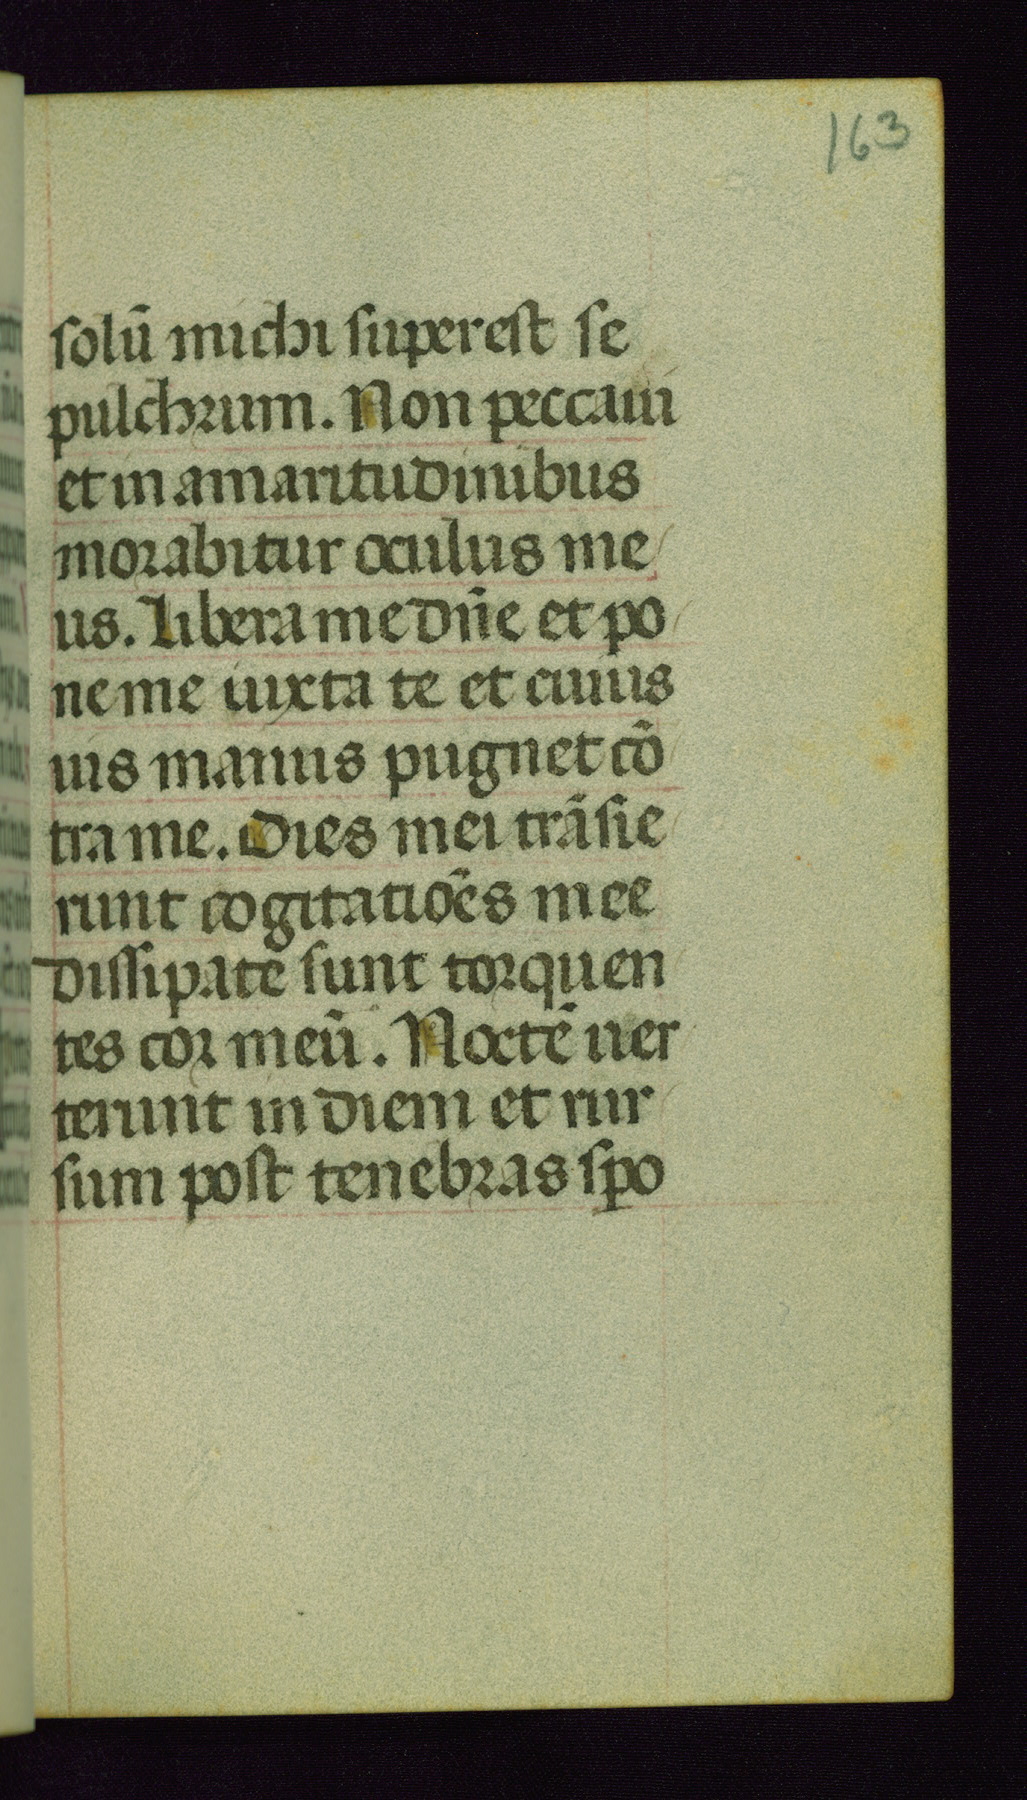 163
solū michi superest se
pulchrum. Non peccaui
et in amaritudinibus
morabitur oculus me
us. Libera me dn̄e et po
ne me iuxta te et cuius
uis manus pugnet cō
tra me. Dies mei trāsie
runt cogitatiōes mee
dissipate sunt torquen
tes cor meū. Noctē uer
terunt in diem et rur
sum post tenebras spo